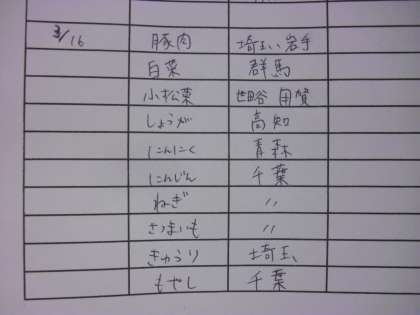 3/16 豚肉 埼玉、岩手
白菜 群馬
小松菜 世田谷 用賀
しょうが 高知
にんにく 青森
にんじん 千葉
ねぎ 〃
さつまいも 〃
きゅうり 埼玉
もやし 千葉